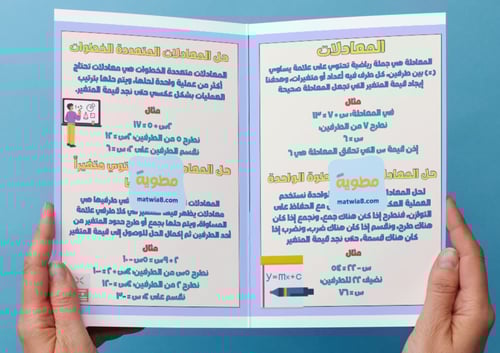 المعادلات
المعادلة هي جملة رياضية تحتوي على علامة يساوي
(=) بين طرفين، كل طرف فيه أعداد أو متغيرات، وهدفنا
إيجاد قيمة المتغير التي تجعل المعادلة صحيحة
مثال
في المعادلة: س + ٧ = ١٣
نطرح ٧ من الطرفين:
إذن قيمة س التي تحقق المعادلة هي ٦
حل الواحدة
لحل الواحدة نستخدم
العملية مع الحفاظ على
التوازن، فنطرح إذا كان هناك جمع، ونجمع إذا كان
هناك طرح، ونقسم إذا كان هناك ضرب، ونضرب إذا
كان هناك قسمة، حتى نجد قيمة المتغير
مثال
س – ٢٢ = ٥٤
نضيف ٢٢ للطرفين:
س = ٧٦
مطوية
matwia8.com
y=mx+c
حل المعادلات المتعددة الخطوات
المعادلات متعددة الخطوات هي معادلات تحتاج
أكثر من عملية واحدة لحلها، ويتم حلها بترتيب
العمليات بشكل عكسي حتى نجد قيمة المتغير
مثال
٢س + ٥ = ١٧
نطرح ٥ من الطرفين: ٢س = ١٢
نقسم الطرفين على ٢: س = ٦
حل متغيراً
المعادلات في طرفيها هي
معادلات يظهر فيها المتغير في كلا طرفي علامة
المساواة، ويتم حلها بجمع أو طرح حدود المتغير من
أحد الطرفين ثم إكمال الحل للوصول إلى قيمة المتغير
مثال
نطرح من الطرفين:
نطرح ٢ من الطرفين:
نقسم على
مطوية
matwia8.com